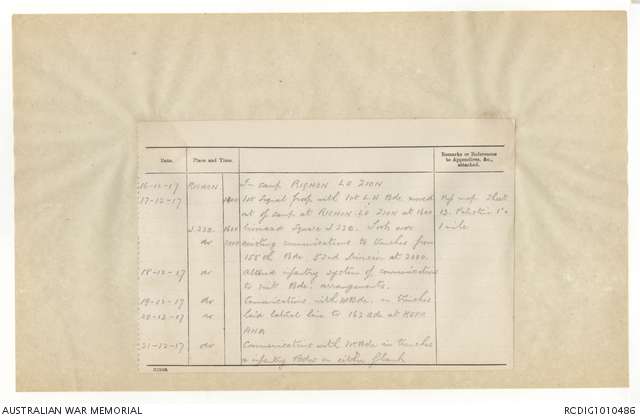 Date. Place and Time. Remarks or References to Appendices, &c., attached.
16-12-17 RICHON In camp RICHON LE ZION
17-12-17 1st Signal Troop with 1st L.H. Bde moved Ref map Sheet
1600 out of camp at RICHON LE ZION at 1600 13. Palestine 1" =
J.22D. bivouac Square J22D. Took over 1 mile
do existing communications to trenches from
155th Bde 52nd Division at 2000.
18-12-17 do Altered infantry system of communications
to suit Bde. arrangements.
19-12-17 do Communications with Bde. in trenches
20-12-17 do laid lateral line to 162 Bde at KEFR
ANA
21-12-17 do Communications with Bde in trenches
& infantry Bdes on either flank
AUSTRALIAN WAR MEMORIAL RCDIG1010486